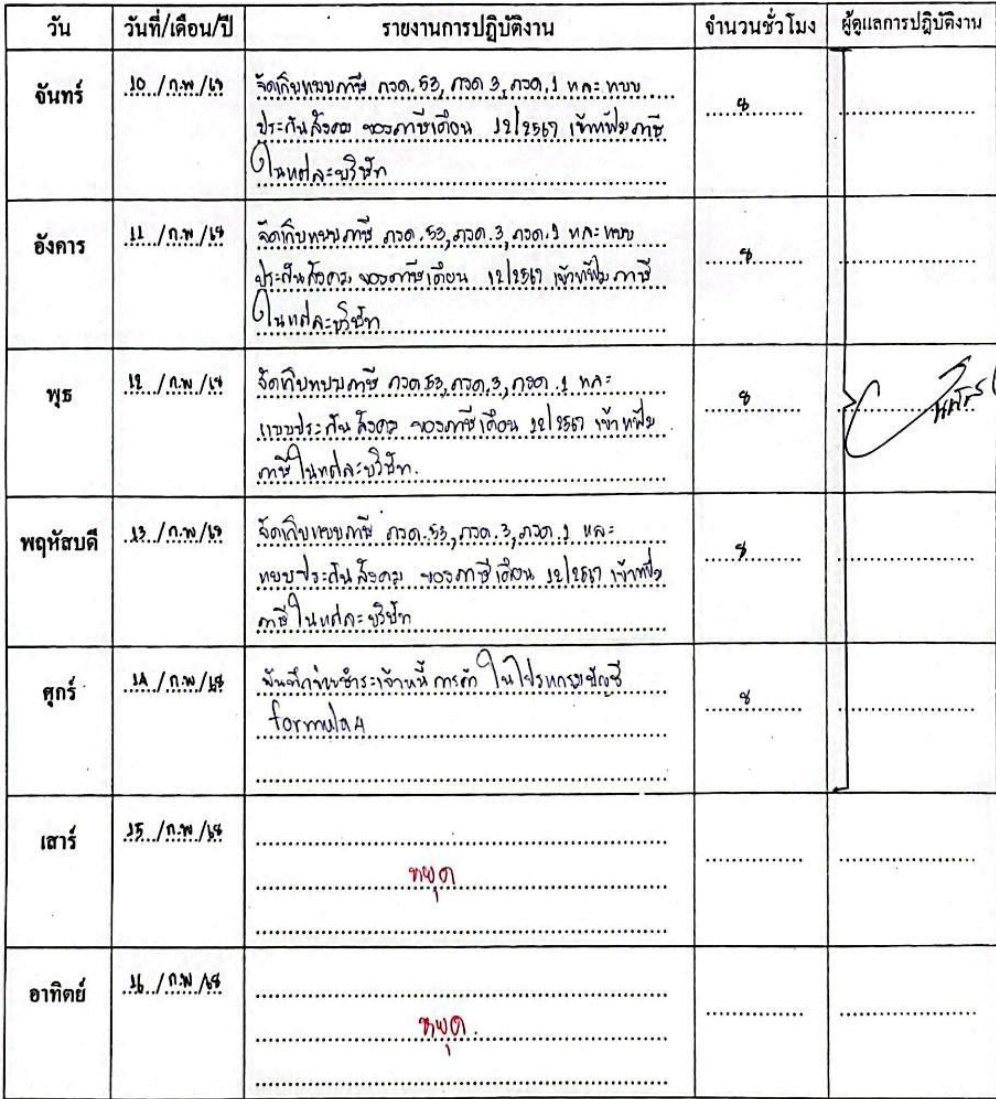 วัน วันที่/เดือน/ปี รายงานการปฏิบัติงาน จำนวนชั่วโมง ผู้ดูแลการปฏิบัติงาน
จันทร์ 10 / ก.พ / 68 จัดเก็บแบบภาษี ภงด. 53, ภงด 3, ภงด. 1 และ แบบ 8
ประกันสังคม ของภาษีเดือน 12/2567 เข้าแฟ้มภาษี
ในแต่ละบริษัท
อังคาร 11 / ก.พ / 68 จัดเก็บแบบภาษี ภงด. 53, ภงด. 3, ภงด. 1 และ แบบ 8
ประกันสังคม ของภาษีเดือน 12/2567 เข้าแฟ้ม ภาษี
ในแต่ละบริษัท
พุธ 12 / ก.พ / 68 จัดเก็บแบบภาษี ภงด 53, ภงด. 3, ภงด. 1 และ 8
แบบประกันสังคม ของภาษีเดือน 12/2567 เข้าแฟ้ม
ภาษีในแต่ละบริษัท.
พฤหัสบดี 13 / ก.พ / 68 จัดเก็บแบบภาษี ภงด. 53, ภงด. 3, ภงด. 1 และ 8
แบบประกันสังคม ของภาษีเดือน 12/2567 เข้าแฟ้ม
ภาษีในแต่ละบริษัท
ศุกร์ 14 / ก.พ / 68 บันทึกจ่ายชำระเจ้าหนี้การค้า ในโปรแกรมบัญชี 8
formula 4
เสาร์ 15 / ก.พ / 68
หยุด
อาทิตย์ 16 / ก.พ / 68
หยุด.